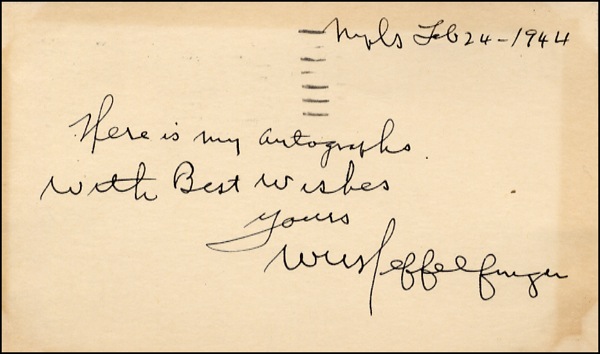 Mpls Feb 24-1944
Here is my autographs.
with Best wishes
yours
WW Heffelfinger